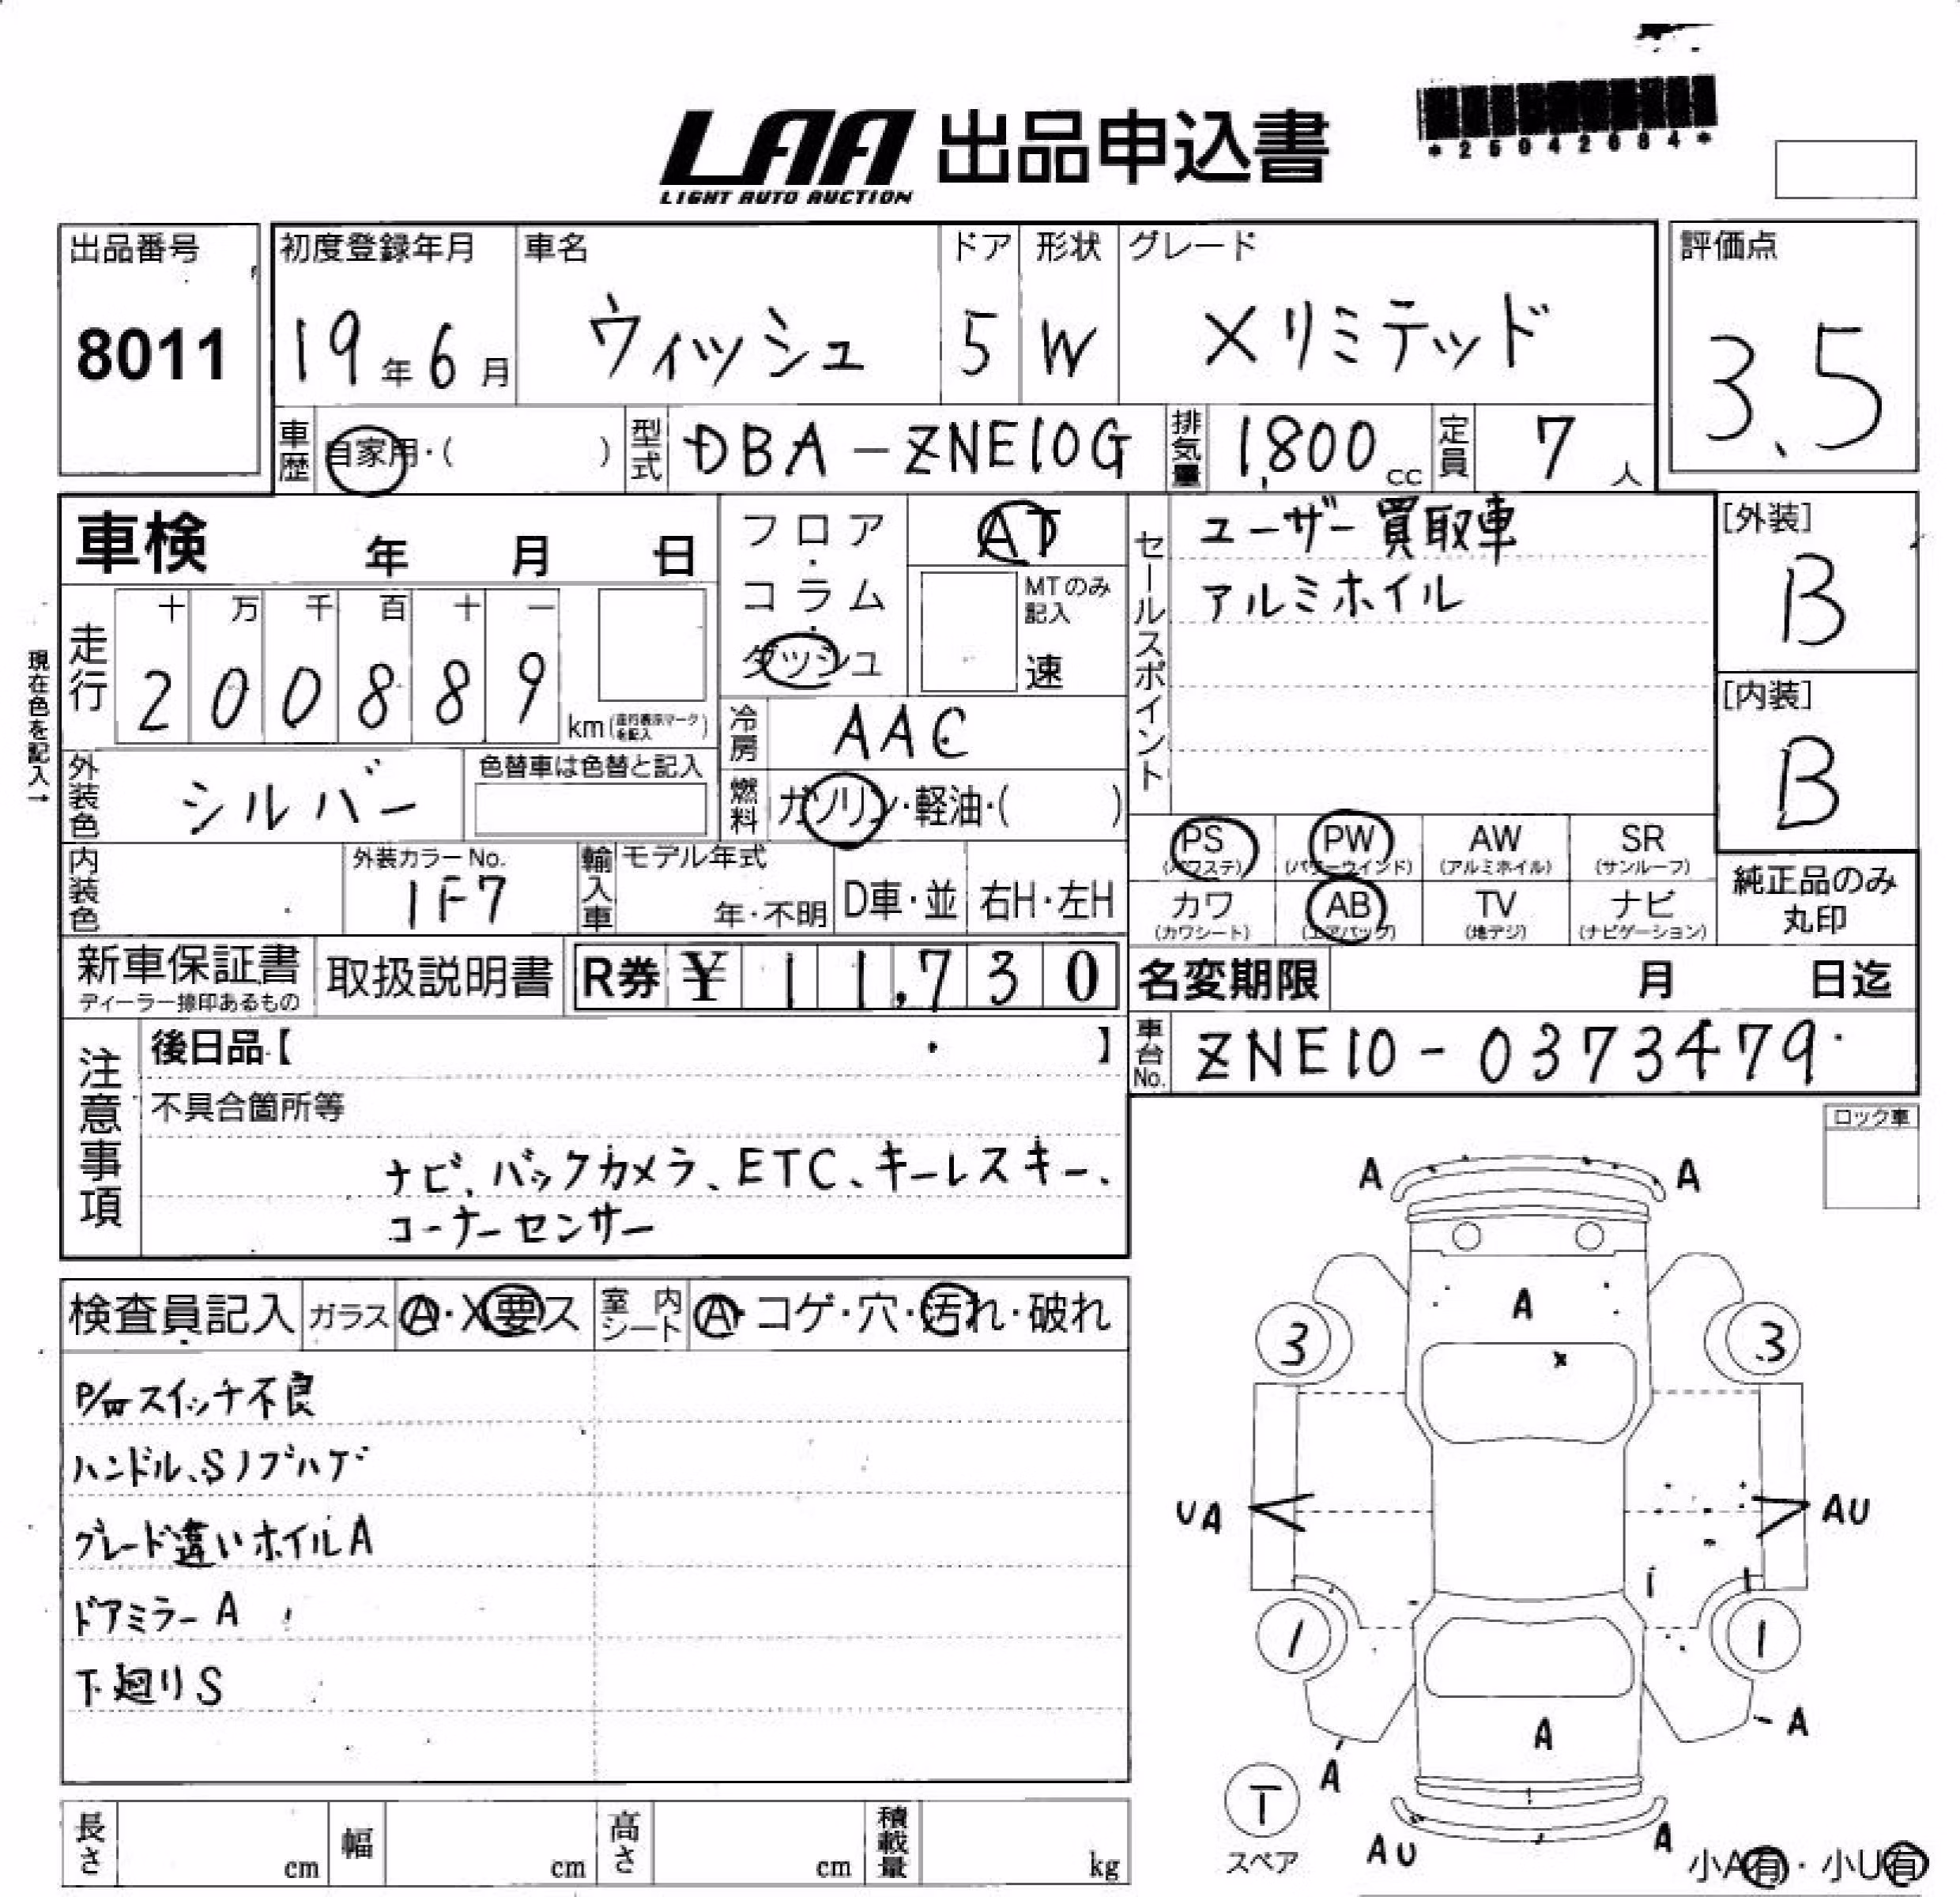 LAA 出品申込書
LIGHT AUTO AUCTION
*25042684*
出品番号
8011
初度登録年月
19年6月
車名
ウィッシュ
ドア
5
形状
W
グレード
Xリミテッド
評価点
3.5
車歴
自家用・( )
型式
DBA-ZNE10G
排気量
1,800cc
定員
7人
車検 年 月 日
フロア・コラム・ダッシュ
AT
MTのみ記入
速
セールスポイント
ユーザー買取車
アルミホイル
[外装]
B
[内装]
B
現在色を記入→
走行
十万千百十一
200889
km(走行表示マークを記入)
冷房
AAC
外装色
シルバー
色替車は色替と記入
燃料
ガソリン・軽油・( )
PS (パワステ)
PW (パワーウインド)
AW (アルミホイル)
SR (サンルーフ)
カワ (カワシート)
AB (エアバッグ)
TV (地デジ)
ナビ (ナビゲーション)
純正品のみ丸印
内装色
外装カラーNo.
1F7
輸入車
モデル年式
年・不明
D車・並
右H・左H
新車保証書
ディーラー捺印あるもの
取扱説明書
R券 ¥11,730
名変期限 月 日迄
車台No.
ZNE10-0373479
注意事項
後日品【 】
不具合箇所等
ナビ、バックカメラ、ETC、キーレスキー、
コーナーセンサー
ロック車
検査員記入
ガラス
A・X要ス
室内シート
A・コゲ・穴・汚れ・破れ
P/Wスイッチ不良
ハンドル、Sノブハゲ
グレード違いホイルA
ドアミラーA
下廻りS
A A
A
3 3
X
UA AU
1 1
A
A A
T
スペア
AU A
小A有・小U有
長さ cm
幅 cm
高さ cm
積載量 kg